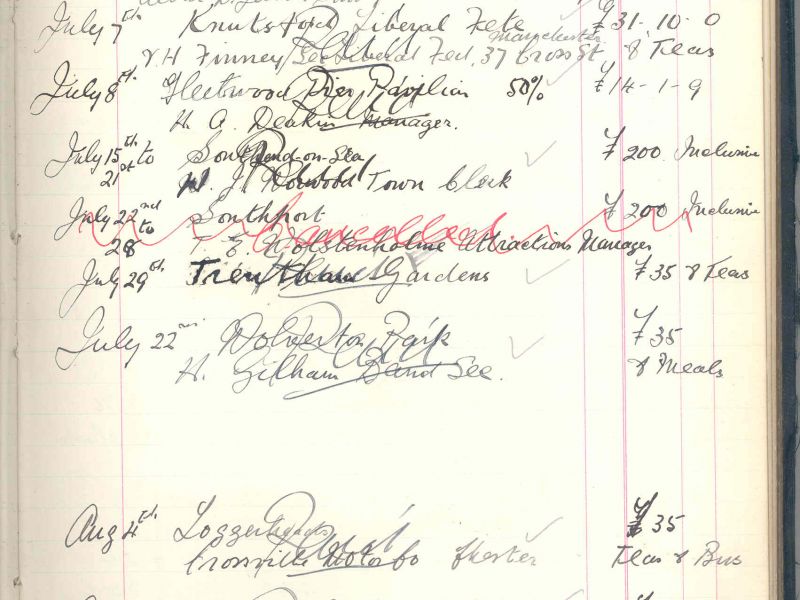 July 7th Knutsford Liberal Fete £31-10-0
V.H Finney Sec Liberal Fed, 37 Cross St Manchester & Teas
July 8th Fleetwood Pier Pavilion 50% £14-1-9
H. A. Deakin Manager.
July 15th to Southend-on-Sea £200 Inclusive
21st W. J. Town Clerk
July 22nd Southport £200 Inclusive
to Cancelled
28 E Wolstenholme Attractions Manager
July 29th Trentham Gardens £35 & Teas
July 22nd Wolverton Park £35
H. Gilham Band Sec. & Meals
Aug 4th Loggerheads £35
Crosville Motor Co Chester Teas & Bus